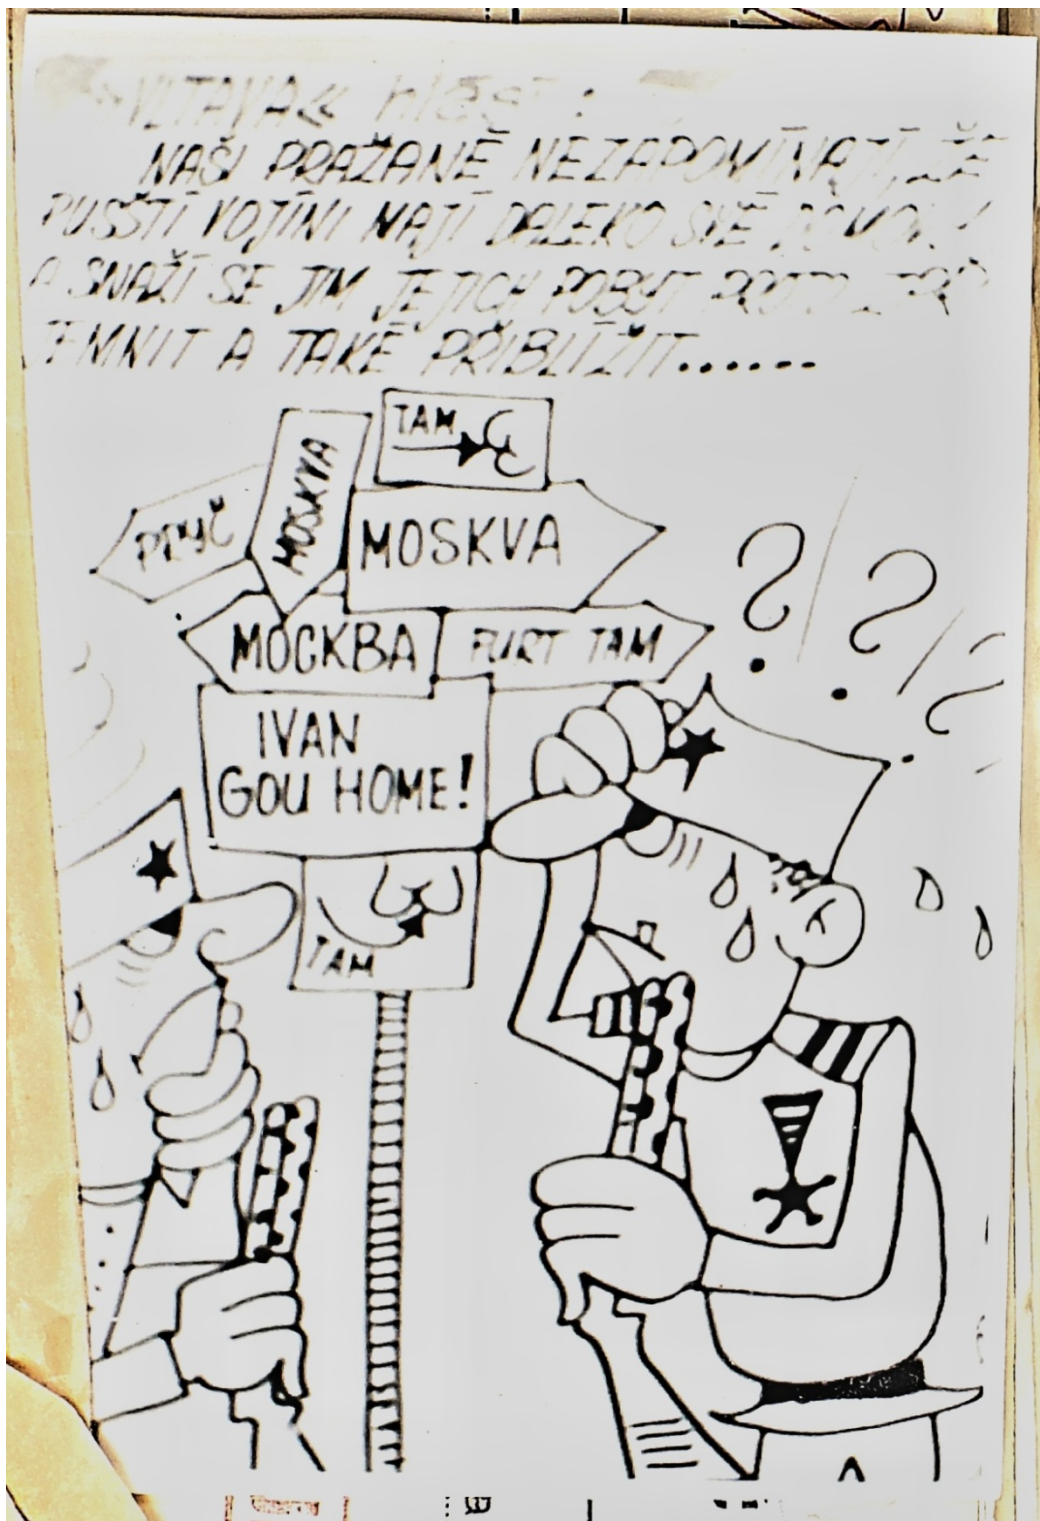 »VLTAVA« hlásí:
NAŠI PRAŽANÉ NEZAPOMÍNAJÍ, ŽE
RUSŠTÍ VOJÍNI MAJÍ DALEKO SVÉ
A SNAŽÍ SE JIM JEJICH POBYT PROTO
JEMNIT A TAKÉ PŘIBLÍŽIT......
TAM
MOSKVA
PRYČ
MOSKVA
МОСКВА
FURT TAM
IVAN
GOU HOME!
TAM
? / ? / ?